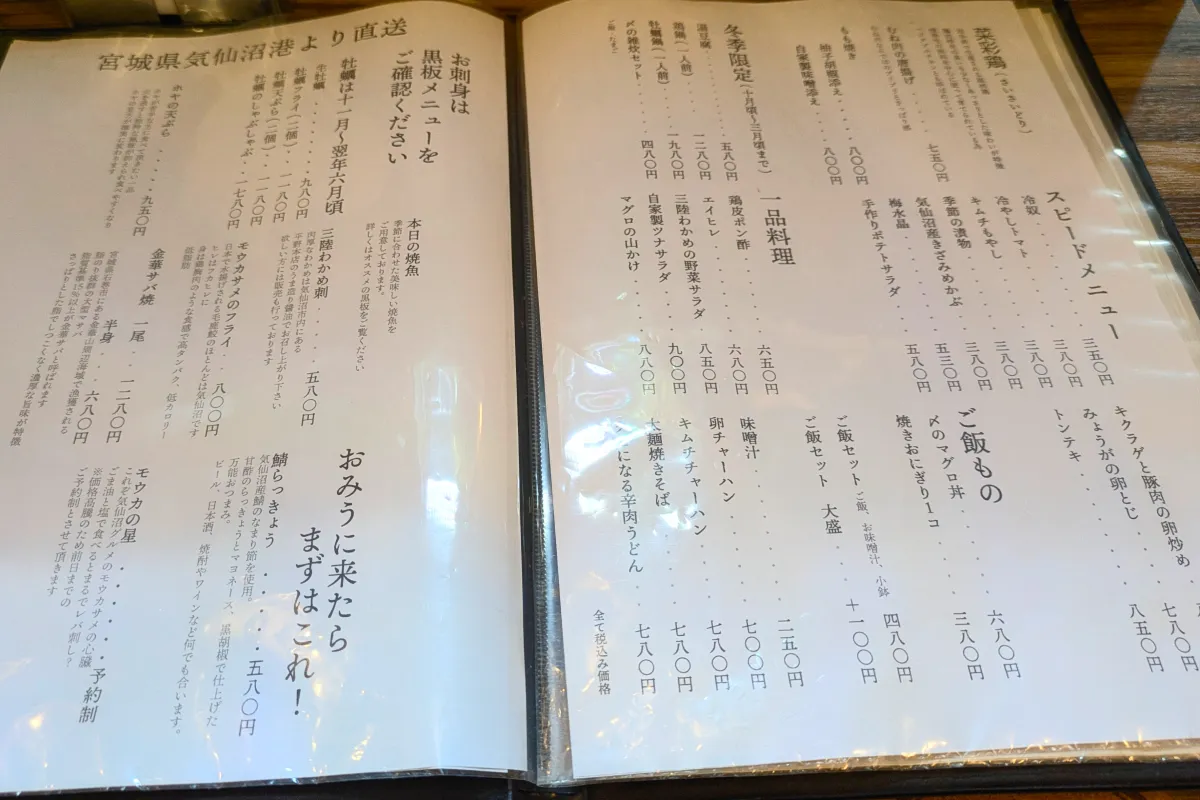 菜彩鶏（さいさいどり）
むね肉の唐揚げ
・・七五〇円
もも焼き
柚子胡椒添え・・・八〇〇円
自家製味噌添え・・・八〇〇円
冬季限定（十月頃〜三月頃まで）
湯豆腐・・・・・・・五八〇円
鶏鍋（一人前）・・・一二八〇円
牡蠣鍋（一人前）・・・一九八〇円
〆の雑炊セット・・・四八〇円
ご飯・たまご
スピードメニュー
三五〇円
冷奴・・・・・三八〇円
冷やしトマト・・・三八〇円
キムチもやし・・・三八〇円
季節の漬物・・・三八〇円
気仙沼産きざみめかぶ・・五三〇円
梅水晶・・・・・五八〇円
手作りポテトサラダ・・
一品料理
鶏皮ポン酢・・・六五〇円
エイヒレ・・・・六八〇円
三陸わかめの野菜サラダ・・八五〇円
自家製ツナサラダ・・・九〇〇円
マグロの山かけ・・・八八〇円
キクラゲと豚肉の卵炒め
みょうがの卵とじ・・・七八〇円
トンテキ・・・・・八五〇円
ご飯もの
〆のマグロ丼・・・・六八〇円
焼きおにぎり1コ・・・三八〇円
ご飯セット ご飯、お味噌汁、小鉢 四八〇円
ご飯セット 大盛・・・十一〇〇円
味噌汁・・・・・二五〇円
卵チャーハン・・・七〇〇円
キムチチャーハン・・・七八〇円
太麺焼きそば・・・七八〇円
になる辛肉うどん・・七八〇円
全て税込み価格
宮城県気仙沼港より直送
お刺身は
黒板メニューを
ご確認ください
牡蠣は十一月〜翌年六月頃
生牡蠣・・・・・・九八〇円
牡蠣フライ（二個）・・一一八〇円
牡蠣天ぷら（二個）・・一一八〇円
牡蠣のしゃぶしゃぶ・・一七八〇円
ホヤの天ぷら・・・・九五〇円
本日の焼魚
季節に合わせた美味しい焼魚を
ご用意しております。
詳しくはオススメの黒板をご覧ください
三陸わかめ刺・・・・五八〇円
肉厚なわかめは気仙沼市内にある
平野本店のうま造り醤油でお召し上がり下さい
欲しい方には販売も行っております
モウカサメのフライ・・八〇〇円
日本で水揚げされる毛鹿鮫のほとんどは気仙沼です
ヒレはフカヒレに
身は鶏胸肉のような食感で高タンパク、低カロリー
低脂肪
金華サバ焼 一尾・・一二八〇円
半身・・・六八〇円
宮城県石巻市にある金華山周辺海域で漁獲される
脂のり抜群の大型マサバ
脂質基準15％以上が金華サバと呼ばれます
さっぱりとした脂でしつこくなく濃厚な旨味が特徴
おみうに来たら
まずはこれ！
鯖らっきょう・・・・五八〇円
気仙沼産鯖のなまり節を使用。
甘酢のらっきょうとマヨネーズ、黒胡椒で仕上げた
万能おつまみ。
ビール、日本酒、焼酎やワインなど何でも合います。
モウカの星・・・・・予約制
これぞ気仙沼グルメのモウカサメの心臓
ごま油と塩で食べるとまるでレバ刺し？
※価格高騰のため前日までの
ご予約制とさせて頂きます